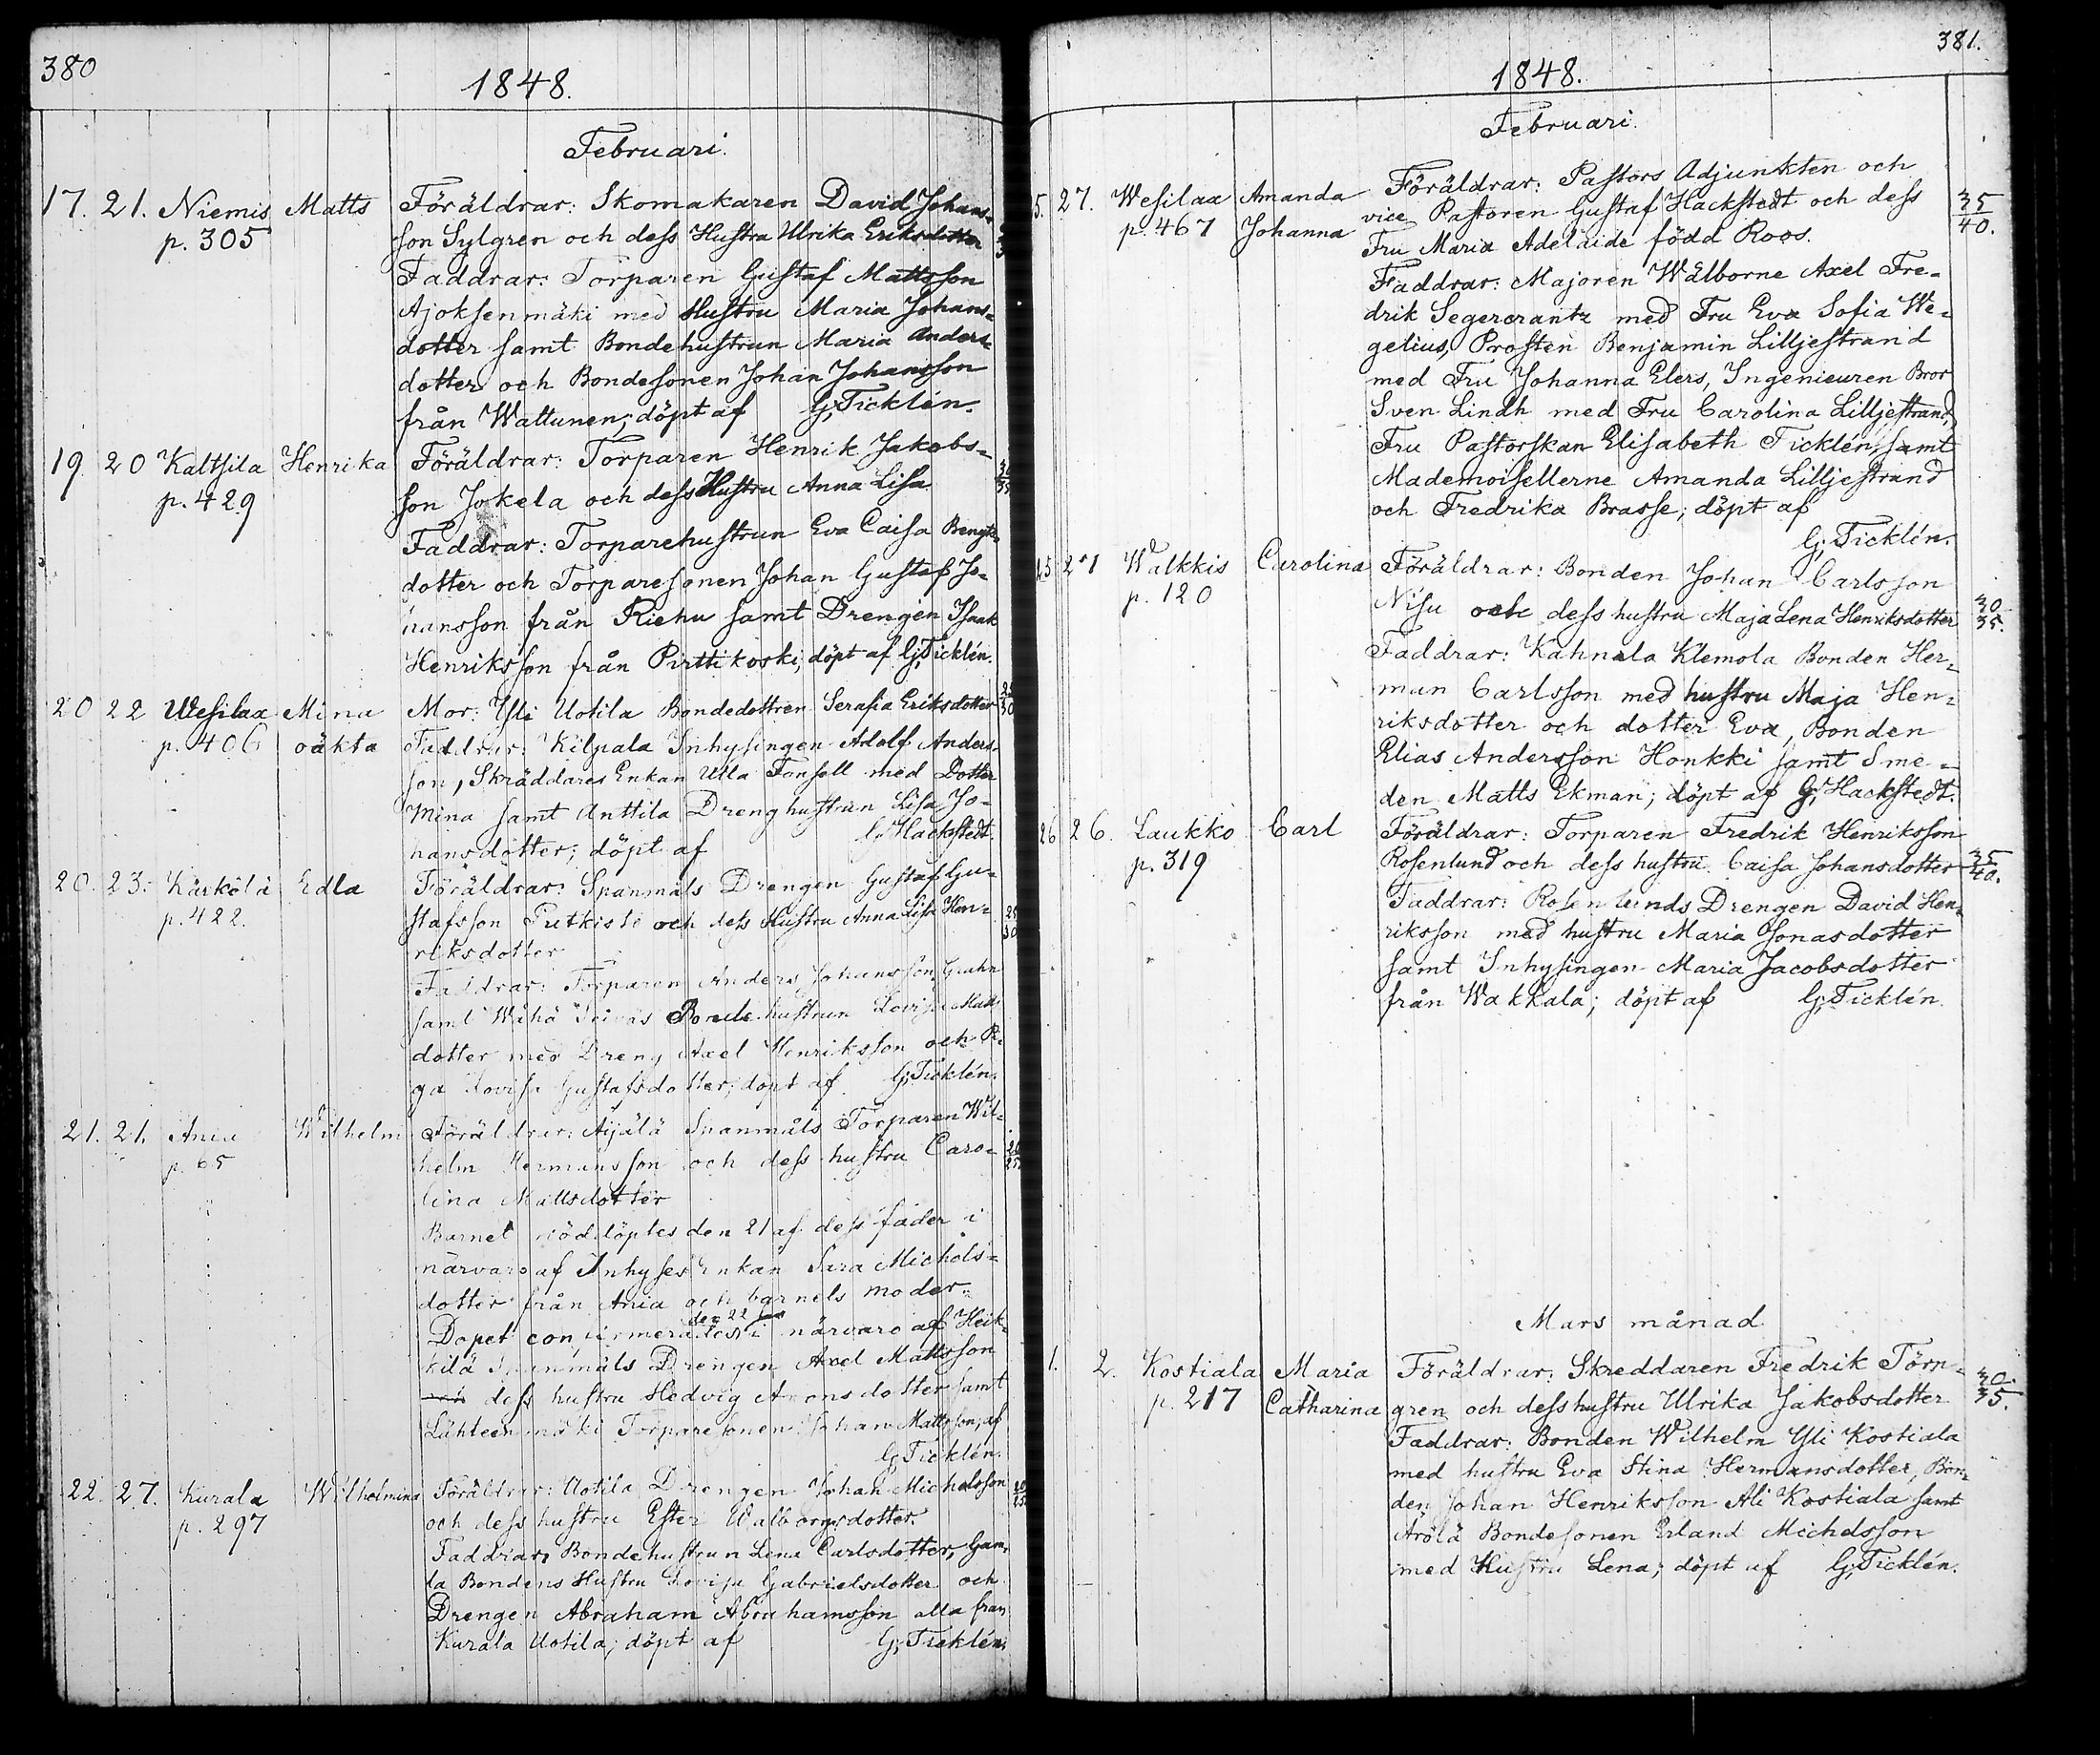 380
1848.
Februari.
17. 21. Niemis Matts Föräldrar: Skomakaren David Johans-
p. 305 son Sylgren och dess Hustru Ulrika Eriksdotter
Faddrar: Torparen Gustaf Mattsson
Ajoksenmäki med Hustru Maria Johans-
dotter samt Bondehustrun Maria Anders-
dotter och Bondesonen Johan Johansson
från Wattunen; döpt af G; Ticklén.
19. 20 Kaltsila Henrika Föräldrar: Torparen Henrik Jakobs-
p. 429 son Jokela och dess Hustru Anna Lisa
Faddrar: Torparehustrun Eva Caisa Bengts-
dotter och Torparesonen Johan Gustaf Jo-
hansson från Riehu samt Drengen Isaak
Henriksson från Pirttikoski; döpt af G; Ticklén.
20 22 Wesilax Mina Mor: Yli Uotila Bondedottren Serafia Eriksdotter
p. 406 oäkta Faddrar: Kilpala Inhysingen Adolf Anders-
son, Skräddares Enkan Ulla Fonsell med Dotter
Mina samt Anttila Drenghustrun Lisa Jo-
hansdotter; döpt af G; Hackstedt.
20. 23. Kärkölä Edla Föräldrar: Spanmåls Drengen Gustaf Gu-
p. 422. stafsson Putkisto och dess Hustru Anna Lisa Hen- 25 30
riksdotter
Faddrar: Torparen Anders Johansson
samt Wähä Bondehustrun Lovisa Matts
dotter med Dreng Axel Henriksson och Pi-
ga Lovisa Gustafsdotter; döpt af G; Ticklén.
21. 21. Ania Wilhelm Föräldrar: Äijälä Spanmåls Torparen Wil-
p. 65 helm Hermansson och dess hustru Caro-
lina Mattsdotter
Barnet nöddöptes den 21 af dess fader i
närvaro af Inhyses Enkan Sara Michels-
dotter från Ania och barnets moder.
den 22
Dopet confirmerades i närvaro af Heik-
kilä Spanmåls Drengen Axel Mattsson
dess hustru Hedvig Aronsdotter samt
Lähteenmäki Torparesonen Johan Mattsson; af
G; Ticklén.
22. 27. Kurala Wilhelmina Föräldrar: Uotila Drengen Johan Michelsson
p. 297 och dess hustru Ester Walborgsdotter.
Faddrar: Bondehustrun Lena Carlsdotter, Gam-
la Bondens Hustru Lovisa Gabrielsdotter och
Drengen Abraham Abrahamsson alla från
Kurala Uotila; döpt af G; Ticklén.
381.
1848.
Februari.
5. 27. Wesilax Amanda Föräldrar: Pastors Adjunkten och
p. 467 Johanna vice Pastoren Gustaf Hackstedt och dess 35 40.
Fru Maria Adelaide född Roos.
Faddrar: Majoren Wälborne Axel Fre-
drik Segercrantz med Fru Eva Sofia We-
gelius, Prosten Benjamin Lilljestrand
med Fru Johanna Elers, Ingenieuren Bror
Sven Lindh med Fru Carolina Lilljestrand,
Fru Pastorskan Elisabeth Ticklén, samt
Mademoisellerne Amanda Lilljestrand
och Fredrika Brasse; döpt af
G; Ticklén.
25 27 Walkkis Carolina Föräldrar: Bonden Johan Carlsson
p. 120 Nisu och dess hustru Maja Lena Henriksdotter 30 35.
Faddrar: Kahnala Klemola Bonden Her-
man Carlsson med hustru Maja Hen-
riksdotter och dotter Eva, Bonden
Elias Andersson Honkki samt Sme-
den Matts Ekman; döpt af G; Hackstedt.
26 26. Laukko Carl Föräldrar: Torparen Fredrik Henriksson
p. 319 Rosenlund och dess hustru Caisa Johansdotter 35 40.
Faddrar: Rosenlunds Drengen David Hen-
riksson med hustru Maria Jonasdotter
samt Inhysingen Maria Jacobsdotter
från Wakkala; döpt af G; Ticklén.
Mars månad
1. 2. Kostiala Maria Föräldrar: Skreddaren Fredrik Törn-
p. 217 Catharina gren och dess hustru Ulrika Jakobsdotter 30. 35.
Faddrar: Bonden Wilhelm Yli Kostiala
med hustru Eva Stina Hermansdotter, Bon-
den Johan Henriksson Ali Kostiala samt
Arölä Bondesonen Erland Michelsson
med Hustru Lena; döpt af G; Ticklén.